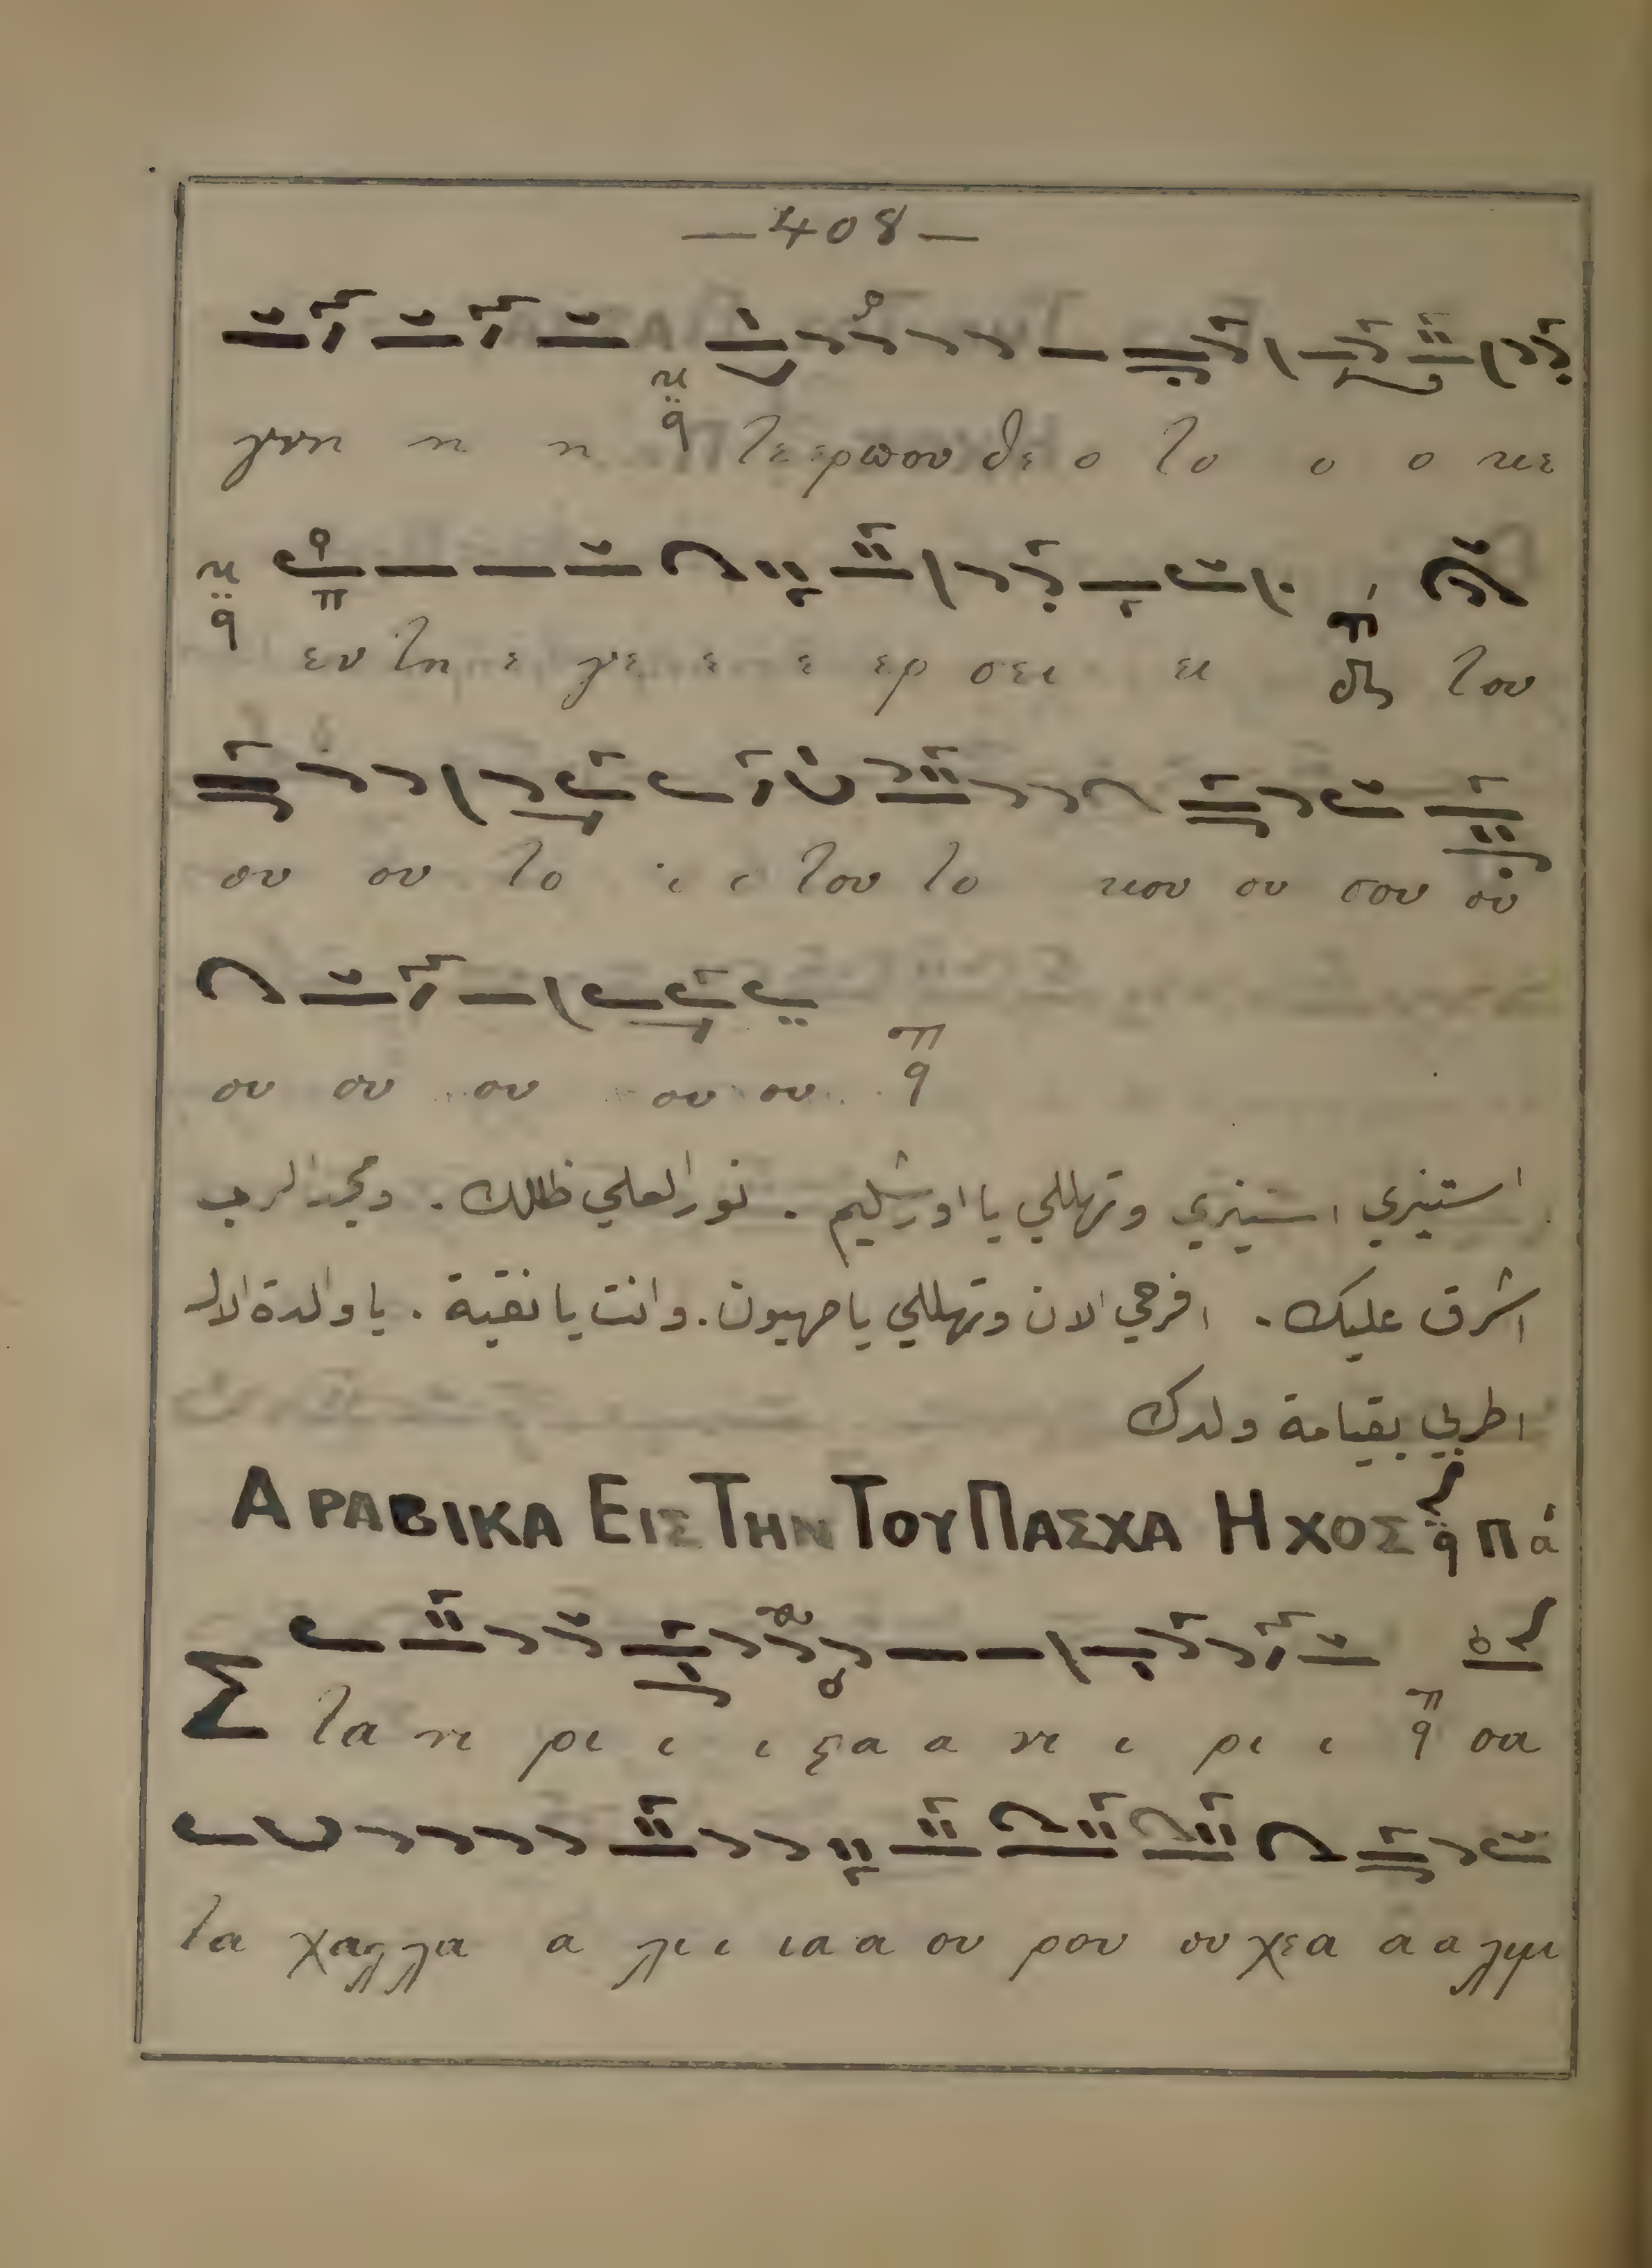 —408—
γνη η η τεερπου θε ο το ο ο κε
εν τη ε γε ε ε ερ σει ει του
ου ου το ι ι του το κου ου σου ου
ου ου ου ου ου
استنيري استنيري وتهللي يا اورشليم . نور العلي ظللك . ومجد الرب
اشرق عليك . افرحي الان وتهللي يا صهيون . وانت يا نقية . يا والدة الاله
اطربي بقيامة ولدك
ΑΡΑΒΙΚΑ ΕΙΣ ΤΗΝ ΤΟΥ ΠΑΣΧΑ ΗΧΟΣ q Πα
Σ τα νι ρι ι ι ςα α νι ι ρι ι σα
τα χαλλα α λι ι ια α ου ρου ου χεα α α λιμι